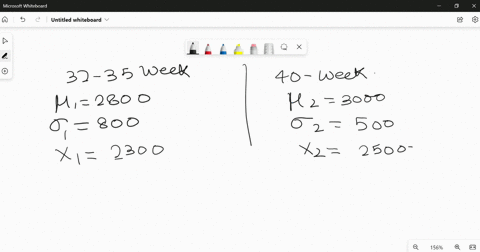 Microsoft Whiteboard
Untitled whiteboard
32-35 Week
μ₁ = 2800
σ₁ = 800
x₁ = 2300
40-Week
μ₂ = 3000
σ₂ = 500
x₂ = 2500
156%